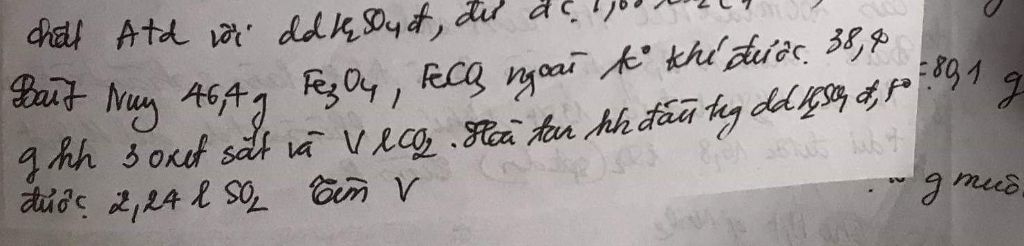 chất A td với dd H2SO4 đ, dư đc 1,68
Bài 7 Nung 46,4 g Fe3O4, FeCO3 ngoài k° khí được 38,4
g hh 3 oxit sắt và V l CO2. Hoà tan hh đầu tg dd H2SO4 đ, t° = 80,1 g
được 2,24 l SO2 Tìm V g muố